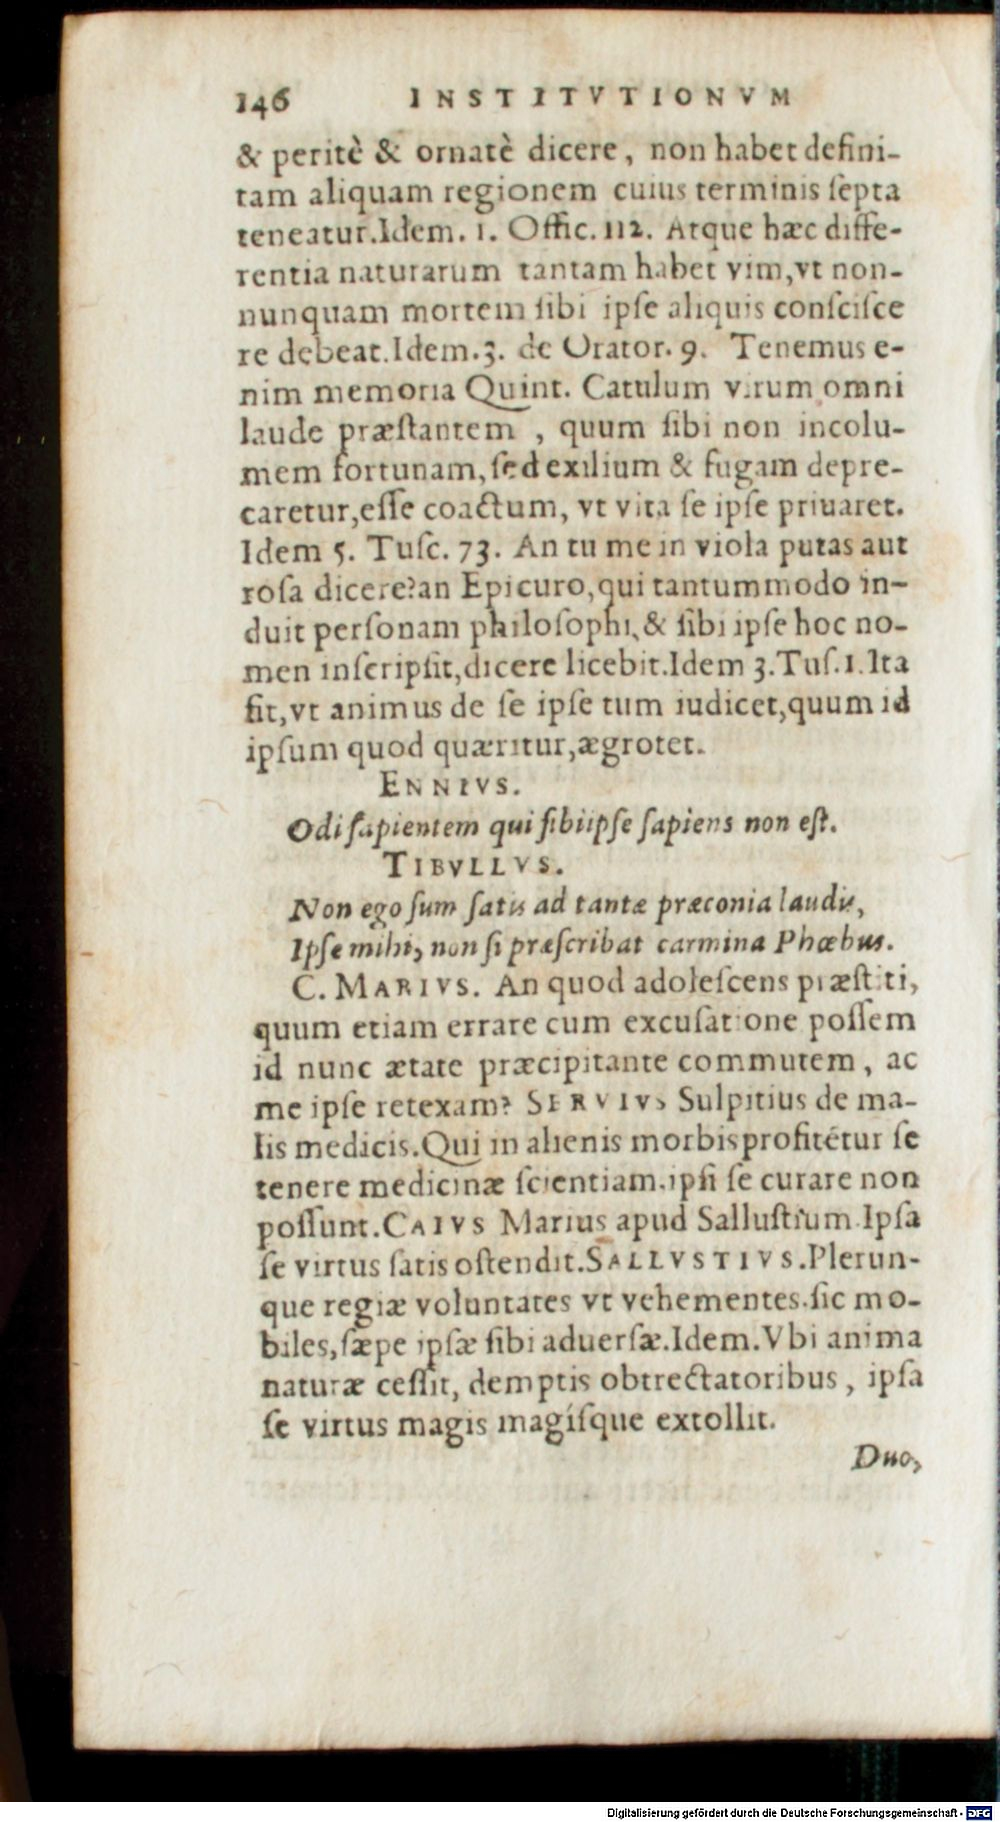 146 INSTITVTIONVM
& peritè & ornatè dicere, non habet defini-
tam aliquam regionem cuius terminis ſepta
teneatur.Idem. 1. Offic. 112. Atque hæc diffe-
rentia naturarum tantam habet vim,vt non-
nunquam mortem ſibi ipſe aliquis conſciſce
re debeat.Idem.3. de Orator. 9. Tenemus e-
nim memoria Quint. Catulum virum omni
laude præſtantem , quum ſibi non incolu-
mem fortunam,ſed exilium & fugam depre-
caretur,eſſe coactum, vt vita ſe ipſe priuaret.
Idem 5. Tuſc. 73. An tu me in viola putas aut
roſa dicere?an Epicuro,qui tantummodo in-
duit perſonam philoſophi,& ſibi ipſe hoc no-
men inſcripſit,dicere licebit.Idem 3.Tuſ.1.Ita
fit,vt animus de ſe ipſe tum iudicet,quum id
ipſum quod quæritur,ægrotet.
ENNIVS.
Odi ſapientem qui ſibiipſe ſapiens non eſt.
TIBVLLVS.
Non ego ſum ſatis ad tantæ præconia laudis,
Ipſe mihi, non ſi præſcribat carmina Phœbus.
C. MARIVS. An quod adoleſcens præſtiti,
quum etiam errare cum excuſatione poſſem
id nunc ætate præcipitante commutem, ac
me ipſe retexam? SERVIVS Sulpitius de ma-
lis medicis.Qui in alienis morbis profitétur ſe
tenere medicinæ ſcientiam.ipſi ſe curare non
poſſunt.CAIVS Marius apud Salluſtium.Ipſa
ſe virtus ſatis oſtendit.SALLVSTIVS.Plerun-
que regiæ voluntates vt vehementes.ſic mo-
biles,ſæpe ipſæ ſibi aduerſæ.Idem.Vbi anima
naturæ ceſſit, demptis obtrectatoribus, ipſa
ſe virtus magis magíſque extollit.
Duo,
Digitalisierung gefördert durch die Deutsche Forschungsgemeinschaft - DFG